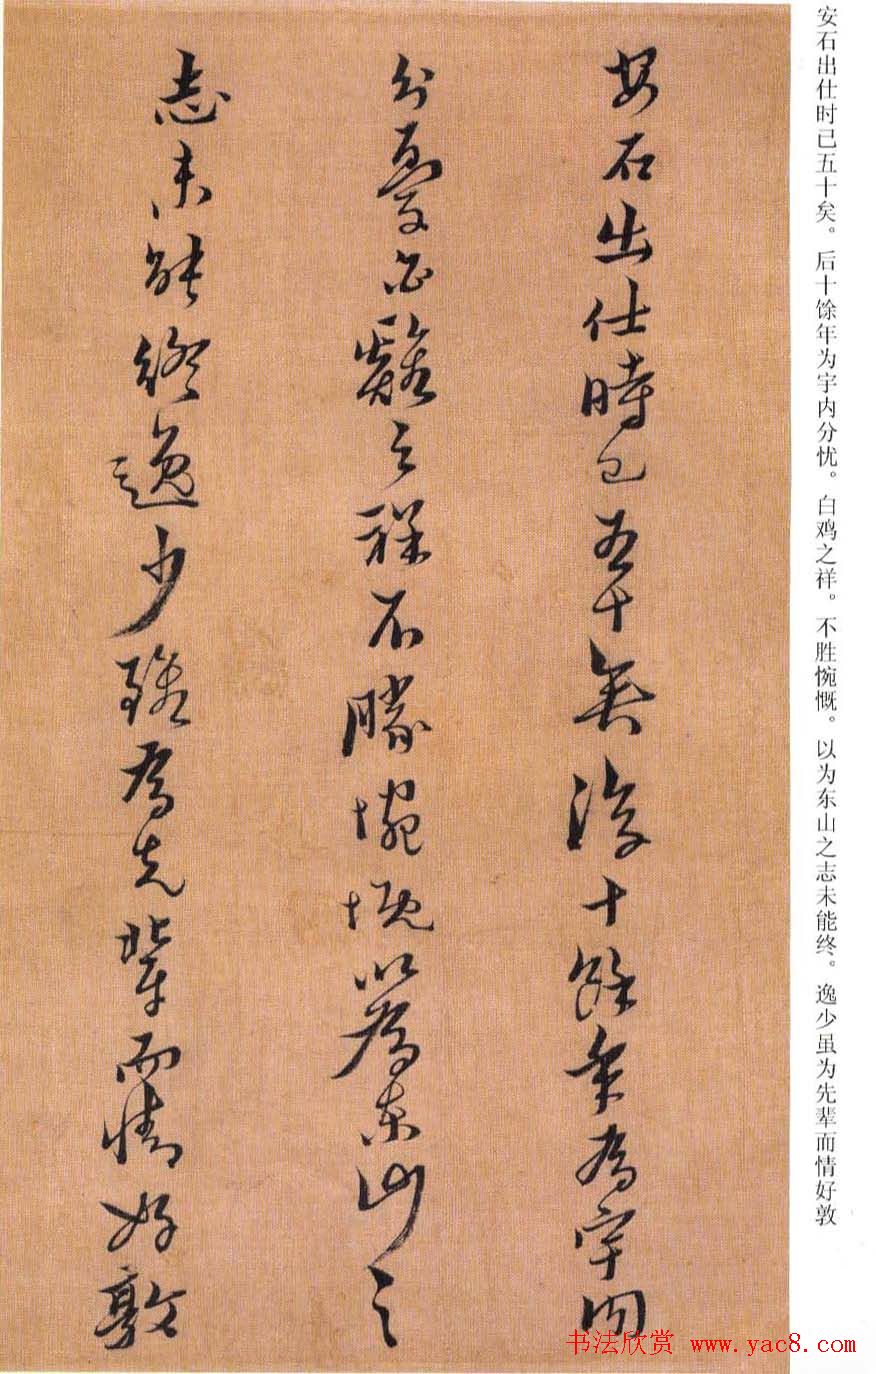 安石出仕时已五十矣。后十馀年为宇内分忧。白鸡之祥。不胜惋慨。以为东山之志未能终。逸少虽为先辈而情好敦
安石出仕時已五十矣後十餘年為宇内
分憂白鷄之祥不勝惋慨以為東山之
志未能終逸少雖為先輩而情好敦
书法欣赏 www.yac8.com